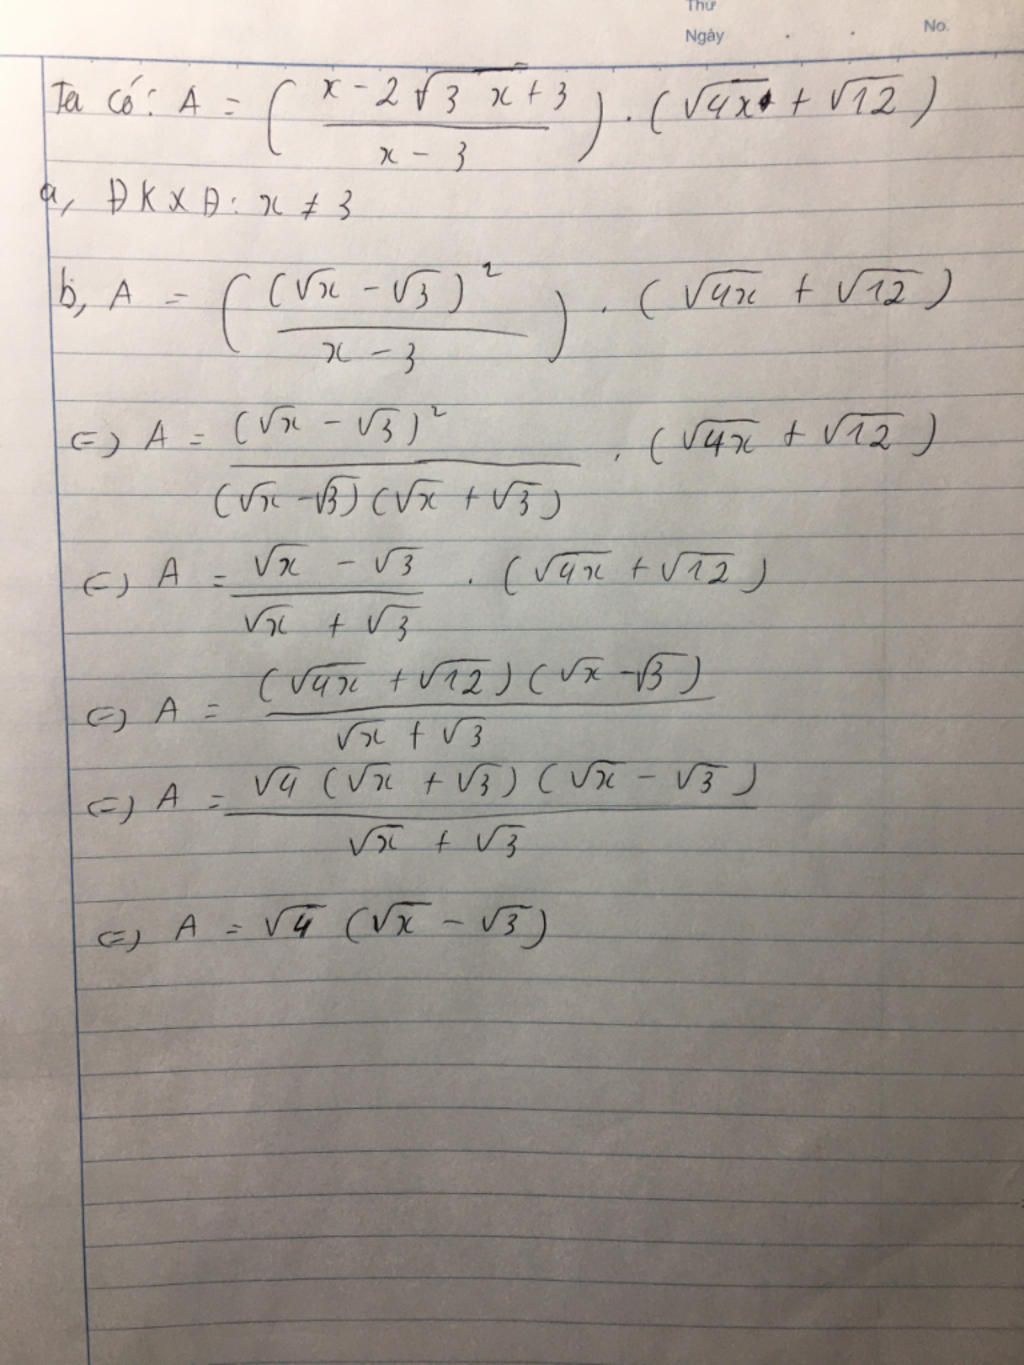 Thứ
Ngày . . No.
Ta có: A = ( (x - 2√(3x) + 3) / (x - 3) ) . (√4x + √12)
a, ĐKXĐ: x ≠ 3
b, A = ( (√x - √3)² / (x - 3) ) . (√4x + √12)
(=) A = (√x - √3)² / ((√x - √3)(√x + √3)) . (√4x + √12)
(=) A = (√x - √3) / (√x + √3) . (√4x + √12)
(=) A = (√4x + √12)(√x - √3) / (√x + √3)
(=) A = √4 (√x + √3)(√x - √3) / (√x + √3)
(=) A = √4 (√x - √3)